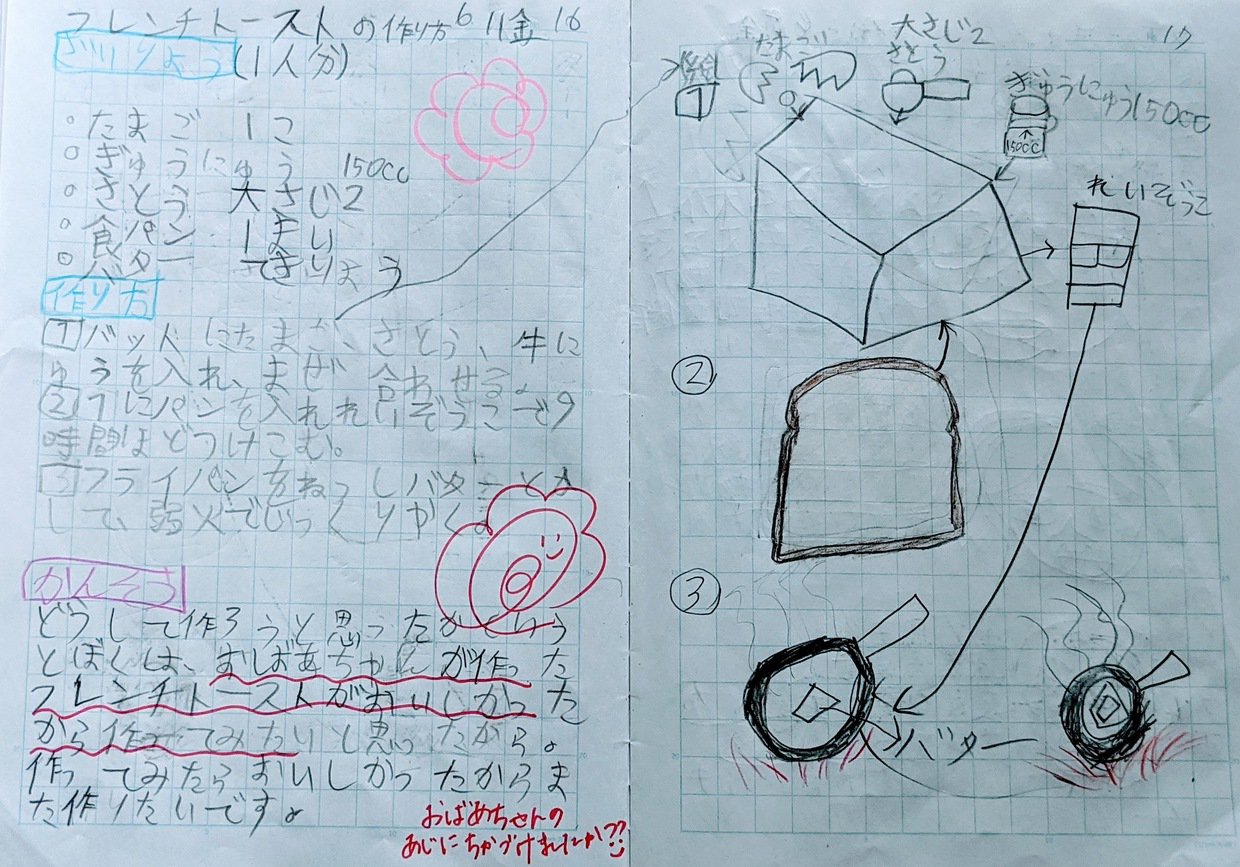 フレンチトーストの作り方 6 11金 16
ざいりょう(1人分)
○たまご 1こ
○ぎゅうにゅう 150cc
○さとう 大さじ2
○食パン 1まい
○バター てきりょう
作り方
1バットにたまご、さとう、牛に
ゅうを入れ、まぜ合わせる。
2 1にパンを入れれいぞうこで9
時間ほどつけこむ。
3フライパンをねっしバターとか
して、弱火でじっくりやく。
かんそう
どうして作ろうと思ったかという
とぼくは、おばあちゃんが作った
フレンチトーストがおいしかった
から作ってみたいと思ったから。
作ってみたらおいしかったからま
た作りたいです。
おばあちゃんの
あじにちかづけましたか??
17
絵
1
たまご
大さじ2
さとう
ぎゅうにゅう150cc
150CC
れいぞうこ
②
③
バター